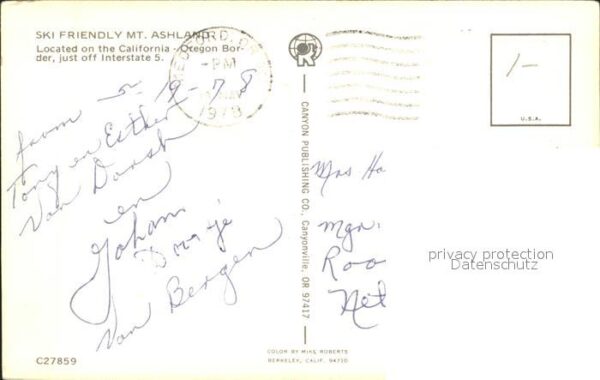 SKI FRIENDLY MT. ASHLAND
Located on the California - Oregon Bor-
der, just off Interstate 5.
PM
1978
5-19-78
from
Tony en Esther
Van Dorsh
en
Johann
Van Bergen
CANYON PUBLISHING CO., Canyonville, OR 97417
1-
U.S.A.
Mrs Ho
Mgr.
Roo
Net
privacy protection
Datenschutz
C27859
COLOR BY MIKE ROBERTS
BERKELEY, CALIF. 94710